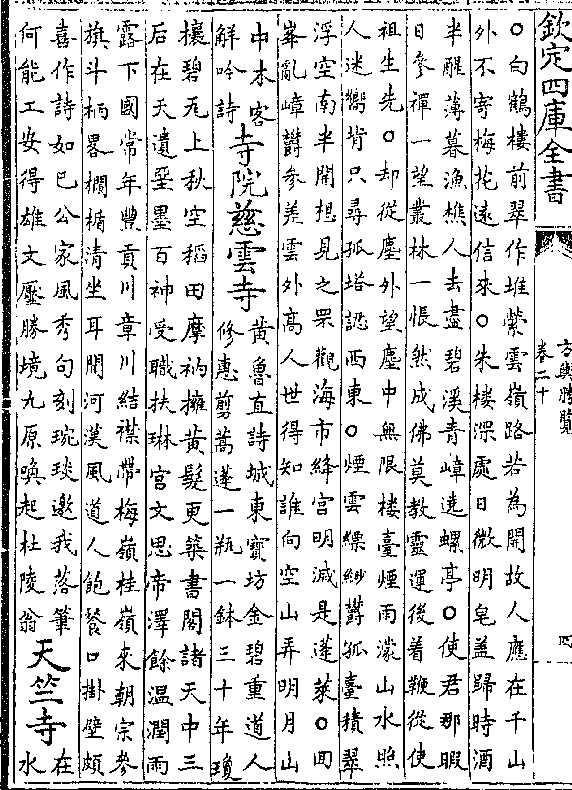 欽定四庫全書
方輿勝覽
卷二十
四
○白鶴樓前翠作堆縈雲嶺路若為開故人應在千山
外不寄梅花遠信來○朱樓深處日微明皂盖歸時酒
半醒薄暮漁樵人去盡碧溪青嶂遶螺亭○使君那暇
日參禪一望叢林一悵然成佛莫教靈運後着鞭從使
祖生先○却從塵外望塵中無限樓臺煙雨濛山水照
人迷嚮背只尋孤塔認西東○煙雲縹緲鬱孤臺積翠
浮空雨半開想見之罘觀海市絳宮明滅是蓬萊○回
峯亂嶂鬱參差雲外高人世得知誰向空山弄明月山
中木客
解吟詩
寺院慈雲寺
黄魯直詩城東寶坊金碧重道人
修惠剪蒿蓬一瓶一鉢三十年瓊
榱碧瓦上秋空稻田摩衲擁黄髮更築書閣諸天中三
后在天遺聖墨百神受職扶琳宮文思帝澤餘温潤雨
露下國常年豐貢川章川結襟帶梅嶺桂嶺來朝宗參
旗斗柄畧欄楯清坐耳聞河漢風道人飽餐口掛壁頗
喜作詩如巳公家風秀句刻琬琰邀我落筆
何能工安得雄文壓勝境九原喚起杜陵翁
天竺寺
在
水